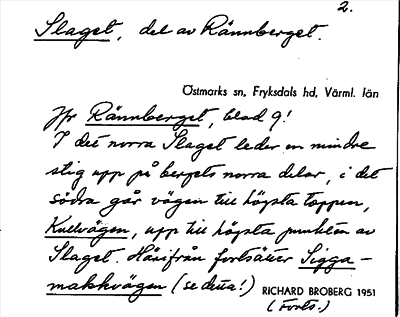 2.
Slaget, del av Rännberget.
Östmarks sn, Fryksdals hd, Värml. län
Jfr Rännberget, blad 9!
I det norra Slaget leder en mindre
stig upp på bergets norra delar, i det
södra går vägen till högsta toppen,
Kullvägen, upp till högsta punkten av
Slaget. Härifrån fortsätter Sigga-
makkvägen (se detta!) RICHARD BROBERG 1951
(Forts.)